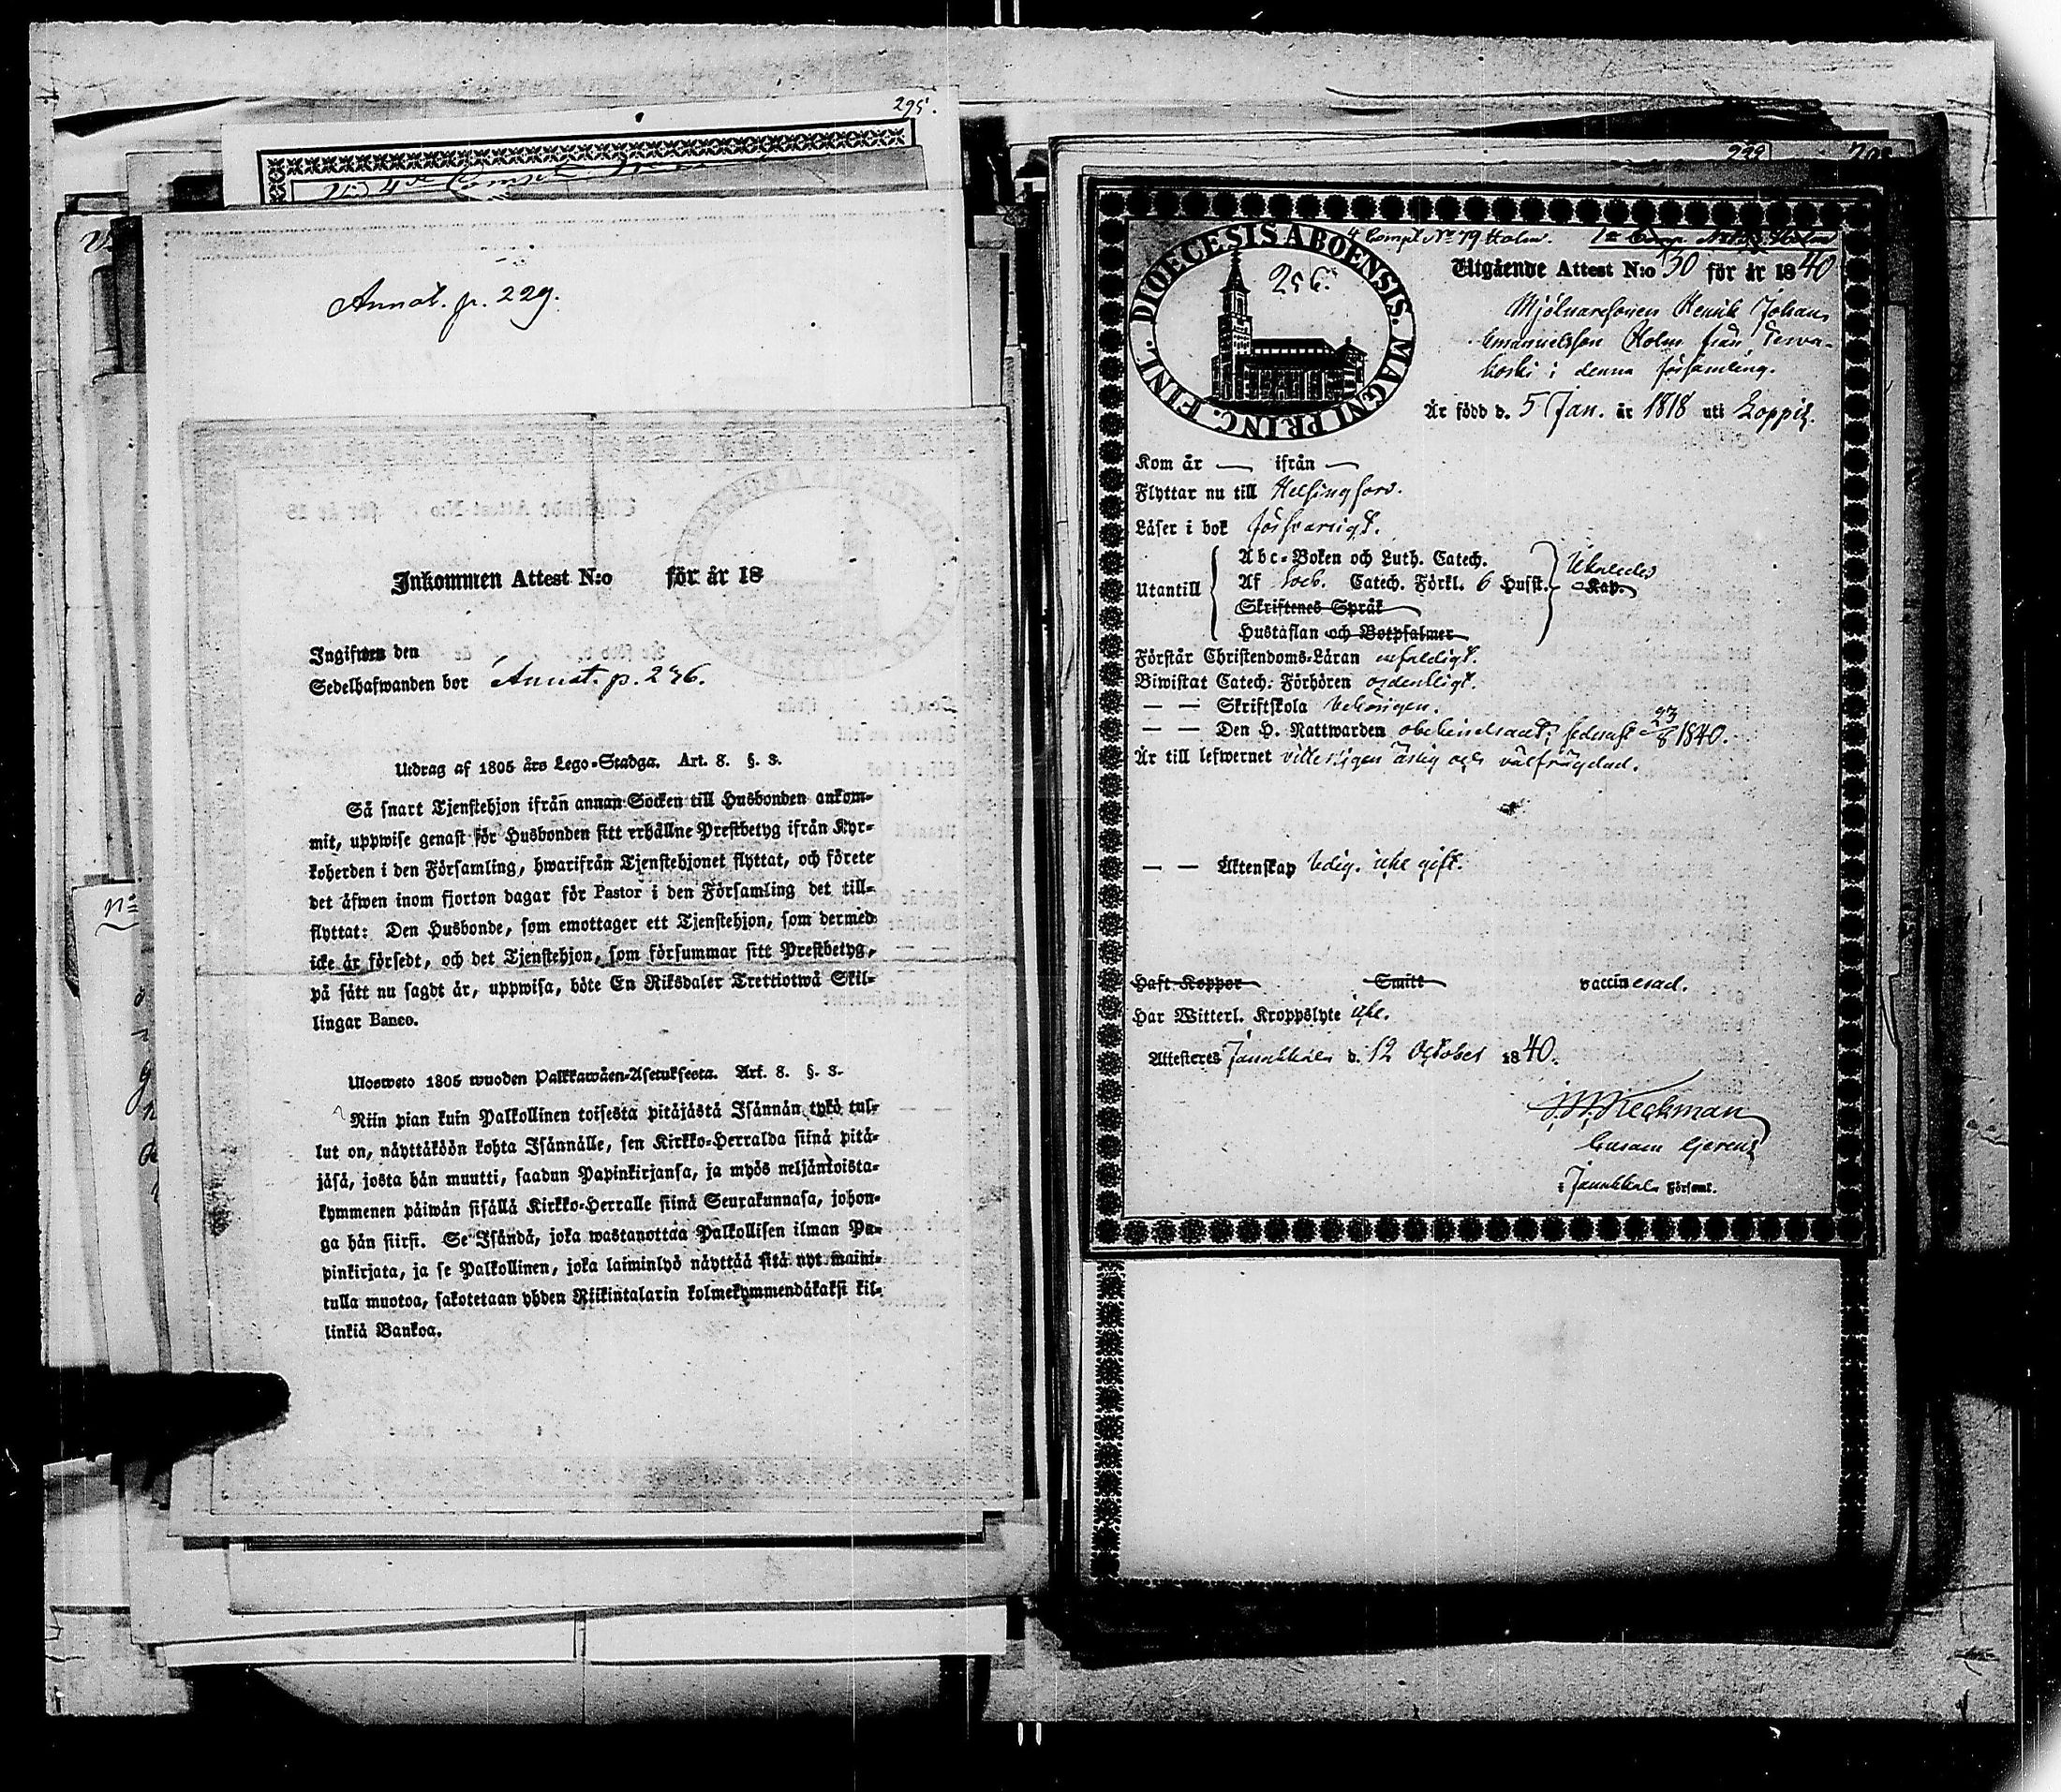 295.
Annot. p. 229.
Inkommen Attest N:o för år 18
Ingifwen den
Sedelhafwanden bor Annot. p. 246.
Utdrag af 1805 års Lego-Stadga. Art. 8. §. 3.
Så snart Tjenstehjon ifrån annan Socken till Husbonden ankom-
mit, uppwise genast för Husbonden sitt erhållne Prestbetyg ifrån Kyr-
koherden i den Församling, hwarifrån Tjenstehjonet flyttat, och förete
det äfwen inom fjorton dagar för Pastor i den Församling det till-
flyttat: Den Husbonde, som emottager ett Tjenstehjon, som dermed
icke är försedt, och det Tjenstehjon, som försummar sitt Prestbetyg,
på sätt nu sagdt är, uppwisa, böte En Riksdaler Trettiotwå Skil-
lingar Banco.
Ulosweto 1805 wuoden Palkkawäen-Asetuksesta. Art. 8. §. 3.
Niin pian kuin Palkollinen toisesta pitäjästä Isännän tykö tul-
lut on, näyttäköön kohta Isännälle, sen Kirkko-Herralda siinä pitä-
jäsä, josta hän muutti, saadun Papinkirjansa, ja myös neljäntoista-
kymmenen päiwän sisällä Kirkko-Herralle siinä Seurakunnasa, johon-
ga hän siirsi. Se Isändä, joka wastanottaa Palkollisen ilman Pa-
pinkirjata, ja se Palkollinen, joka laiminlyö näyttää sitä nyt maini-
tulla muotoa, sakotetaan yhden Riikintalarin kolmekymmendäkaksi kil-
linkiä Bankoa.
299
4 Compt No 79 Holm.
DIOECESIS ABOENSIS. MAGNI PRINC. FINL.
256.
Utgående Attest N:o 50 för år 1840
Mjölnaresonen Henrik Johan
Emanuelsson Holm från Terwa-
koski i denna församling.
Är född d. 5 Jan. år 1818 uti Loppis.
Kom år — ifrån —
Flyttar nu till Helsingfors.
Läser i bok försvarligt.
Utantill
Abc-Boken och Luth. Catech.
Af Sveb. Catech. Förkl. 6 Husst. Kap.
Skriftenes Språk
Hustaflan och Botpsalmer
Förstår Christendoms-Läran enfaldigt.
Biwistat Catech: Förhören ordentligt.
— — Skriftskola behörigen.
— — Den H. Nattwarden obehindradt, sednast 23/8 1840.
Är till lefwernet ärlig och välfrägdad.
— — Äktenskap ledig. icke gift.
Haft Koppor Smitt vaccinerad.
Har Witterl. Kroppslyte icke.
Attesteres Janakkala d. 12 October 1840.
Heckman
i Janakkala Församl.